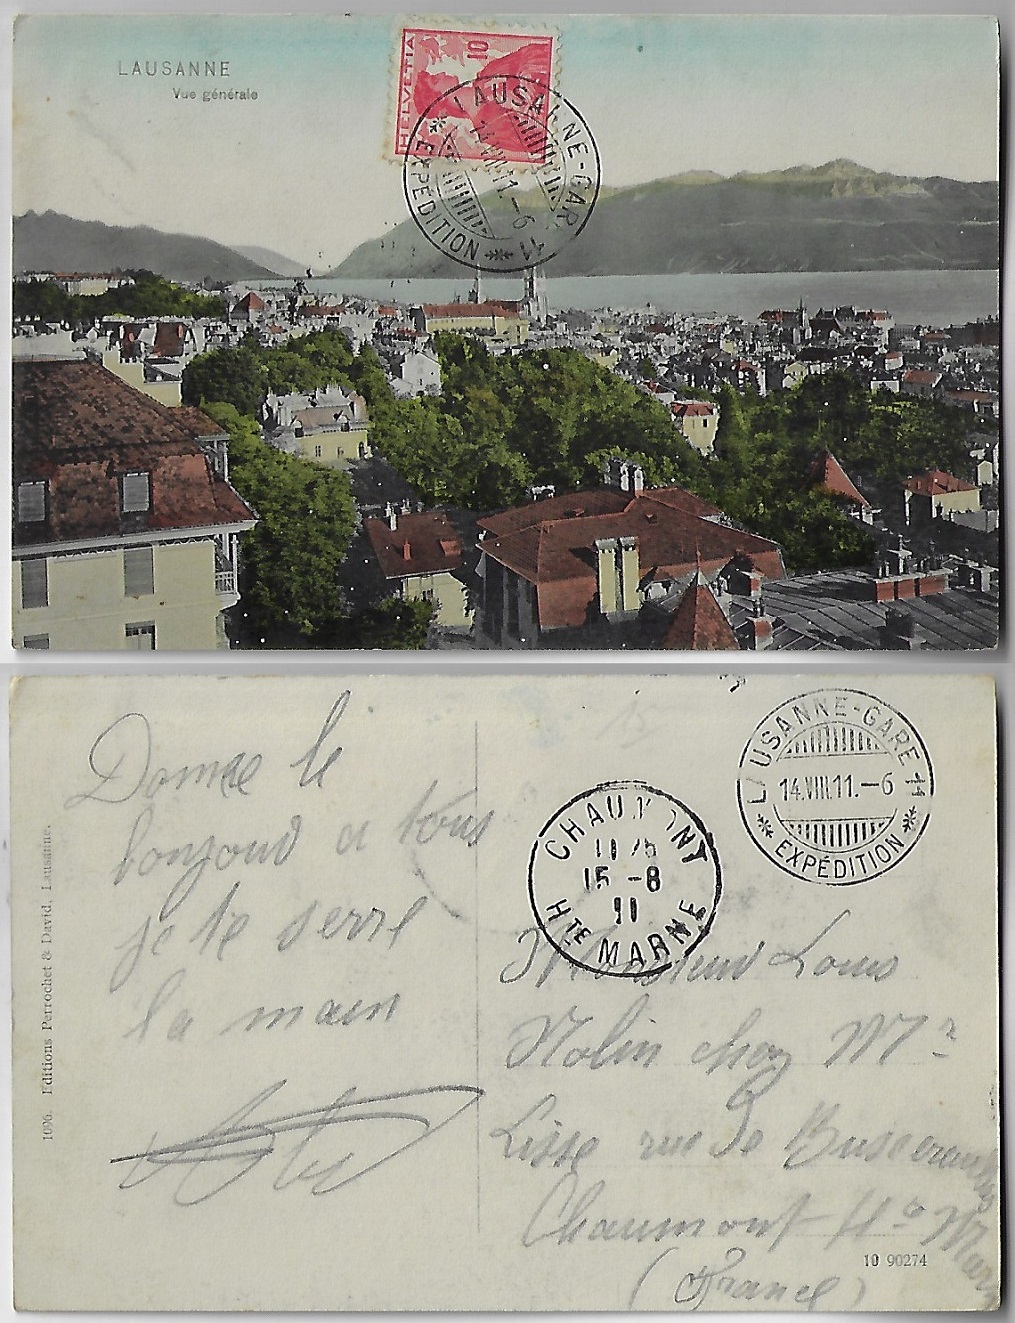 LAUSANNE
Vue générale
HELVETIA
10
LAUSANNE-GARE 11
14.VIII.11.-6
EXPÉDITION
LAUSANNE-GARE 11
14.VIII.11.-6
EXPÉDITION
CHAUMONT
15 -8
11
HTE MARNE
Donne le
bonjour a tous
je te serre
la main
Monsieur Louis
Nolin chez Mr
Lisse rue de
Chaumont Hte Marne
(France)
1096. Editions Perrochet & David, Lausanne.
10 90274